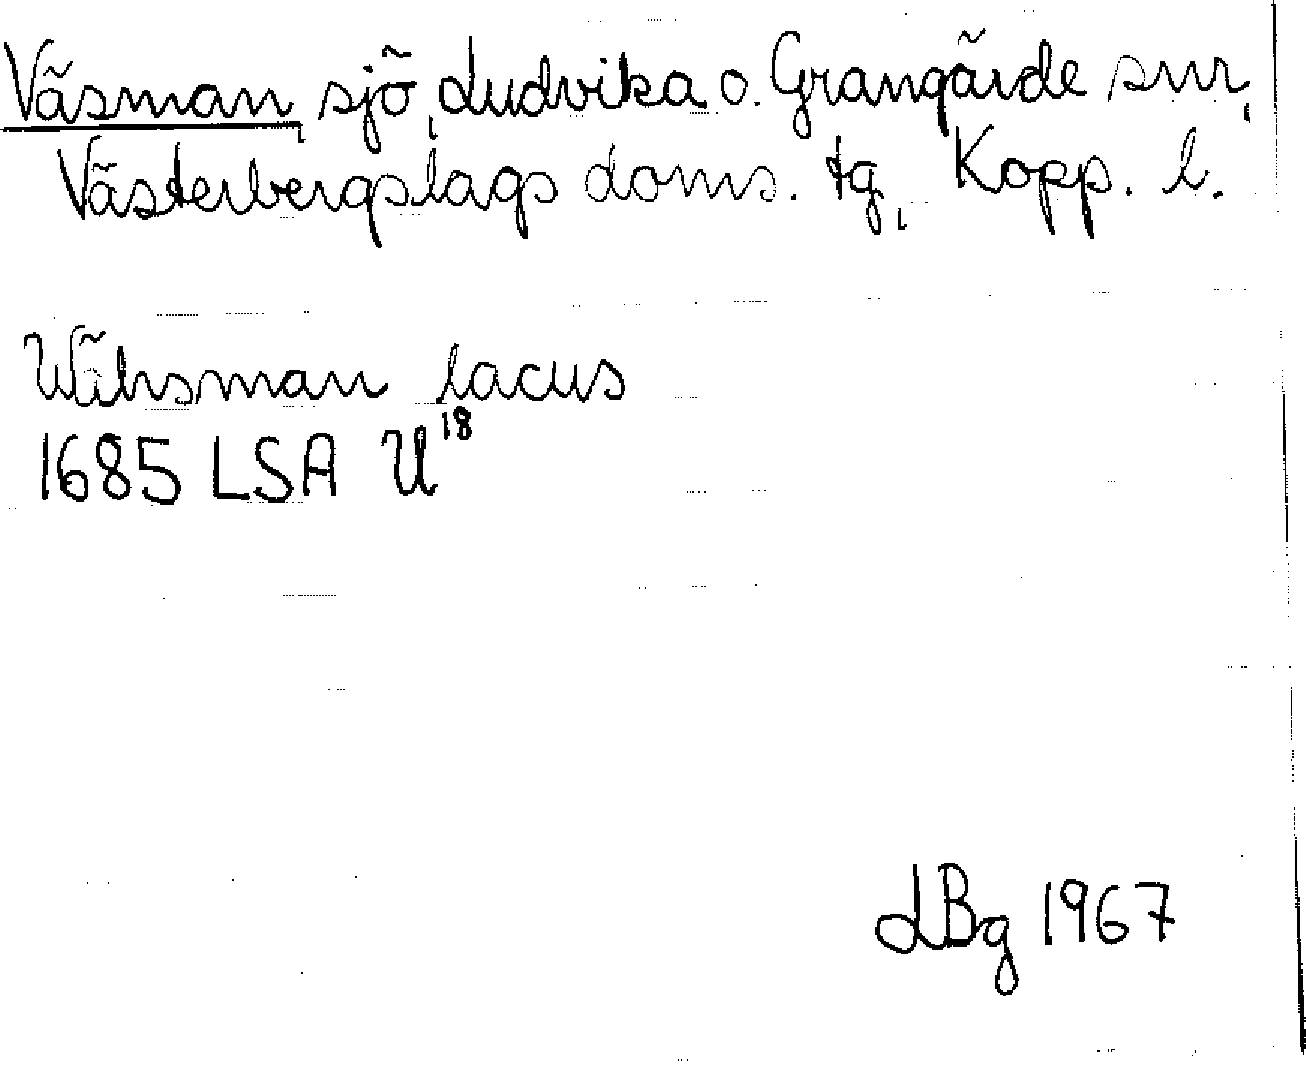 Väsman, sjö, Ludvika o. Grangärde snr,
Västerbergslags doms. tg, Kopp. l.
Wähsman lacus
1685 LSA U18
LBg 1967